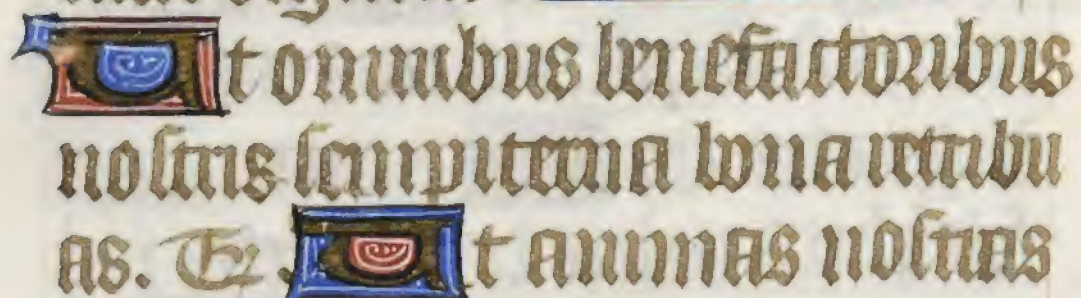 Ut omnibus benefactoribus
nostris sempiterna bona retribu
as. Te. Ut animas nostras